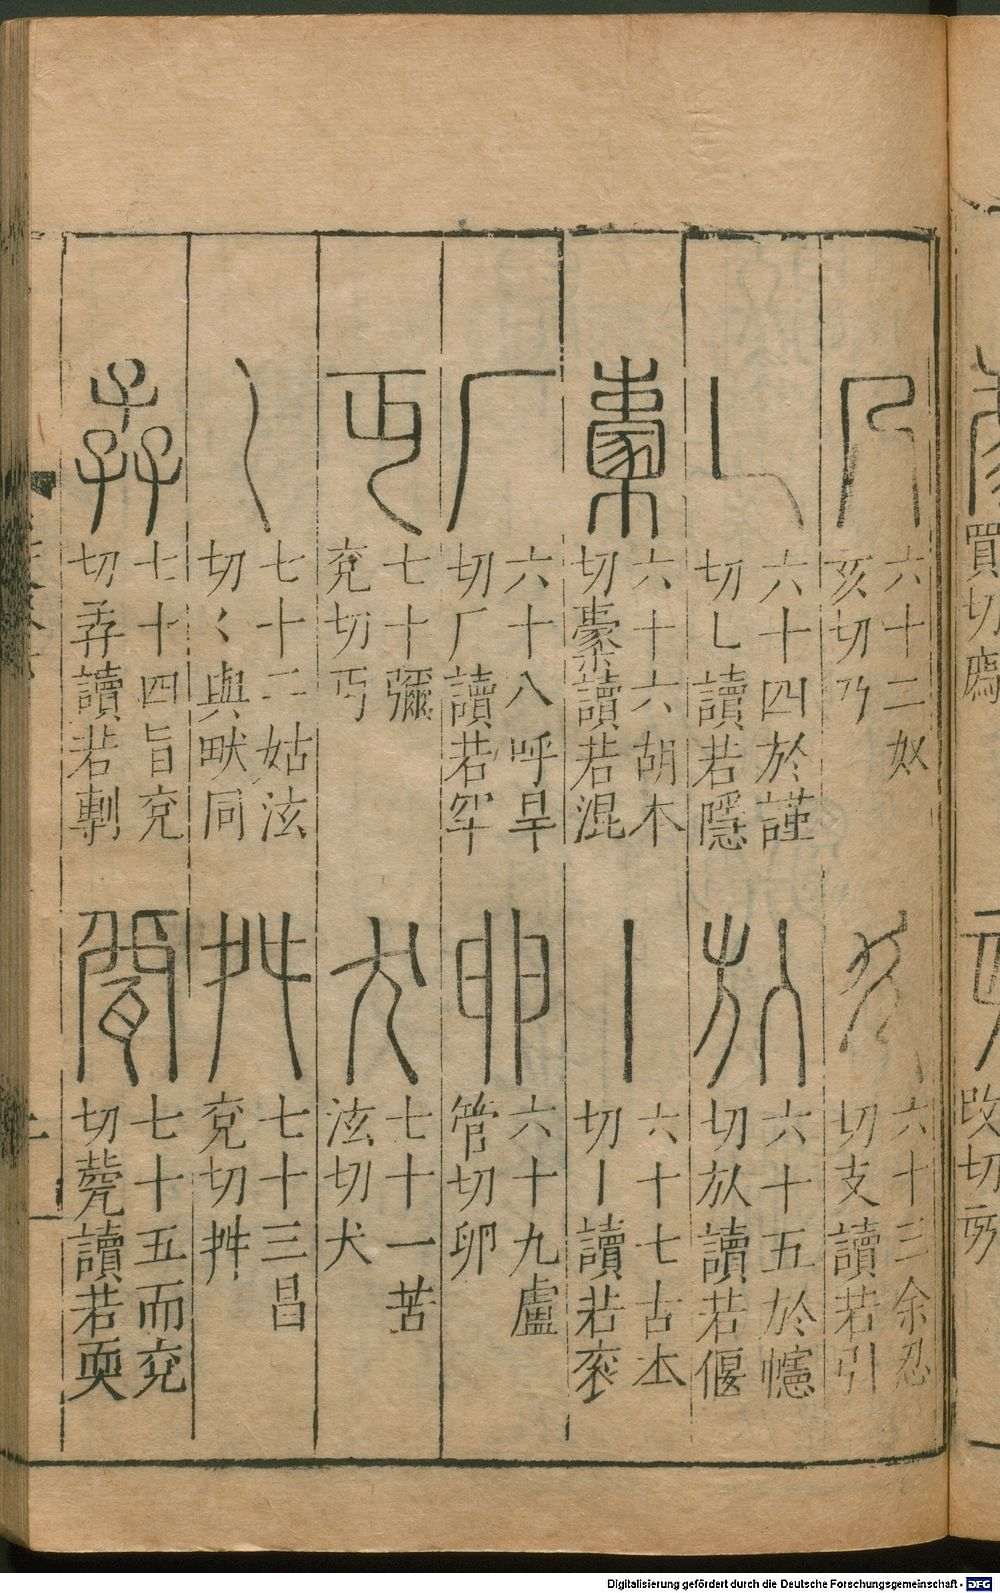 六十二奴
亥切乃
六十三余忍
切支讀若引
六十四於謹
切乚讀若隱
六十五於幰
切㫃讀若偃
六十六胡本
切㯻讀若混
六十七古本
切丨讀若衮
六十八呼旱
切厂讀若罕
六十九盧
管切卵
七十彌
兖切丏
七十一苦
泫切犬
七十二姑泫
切く與畎同
七十三昌
兖切舛
七十四旨兖
切孨讀若剸
七十五而兖
切㼱讀若耎
買切廌
改切
Digitalisierung gefördert durch die Deutsche Forschungsgemeinschaft - DFG